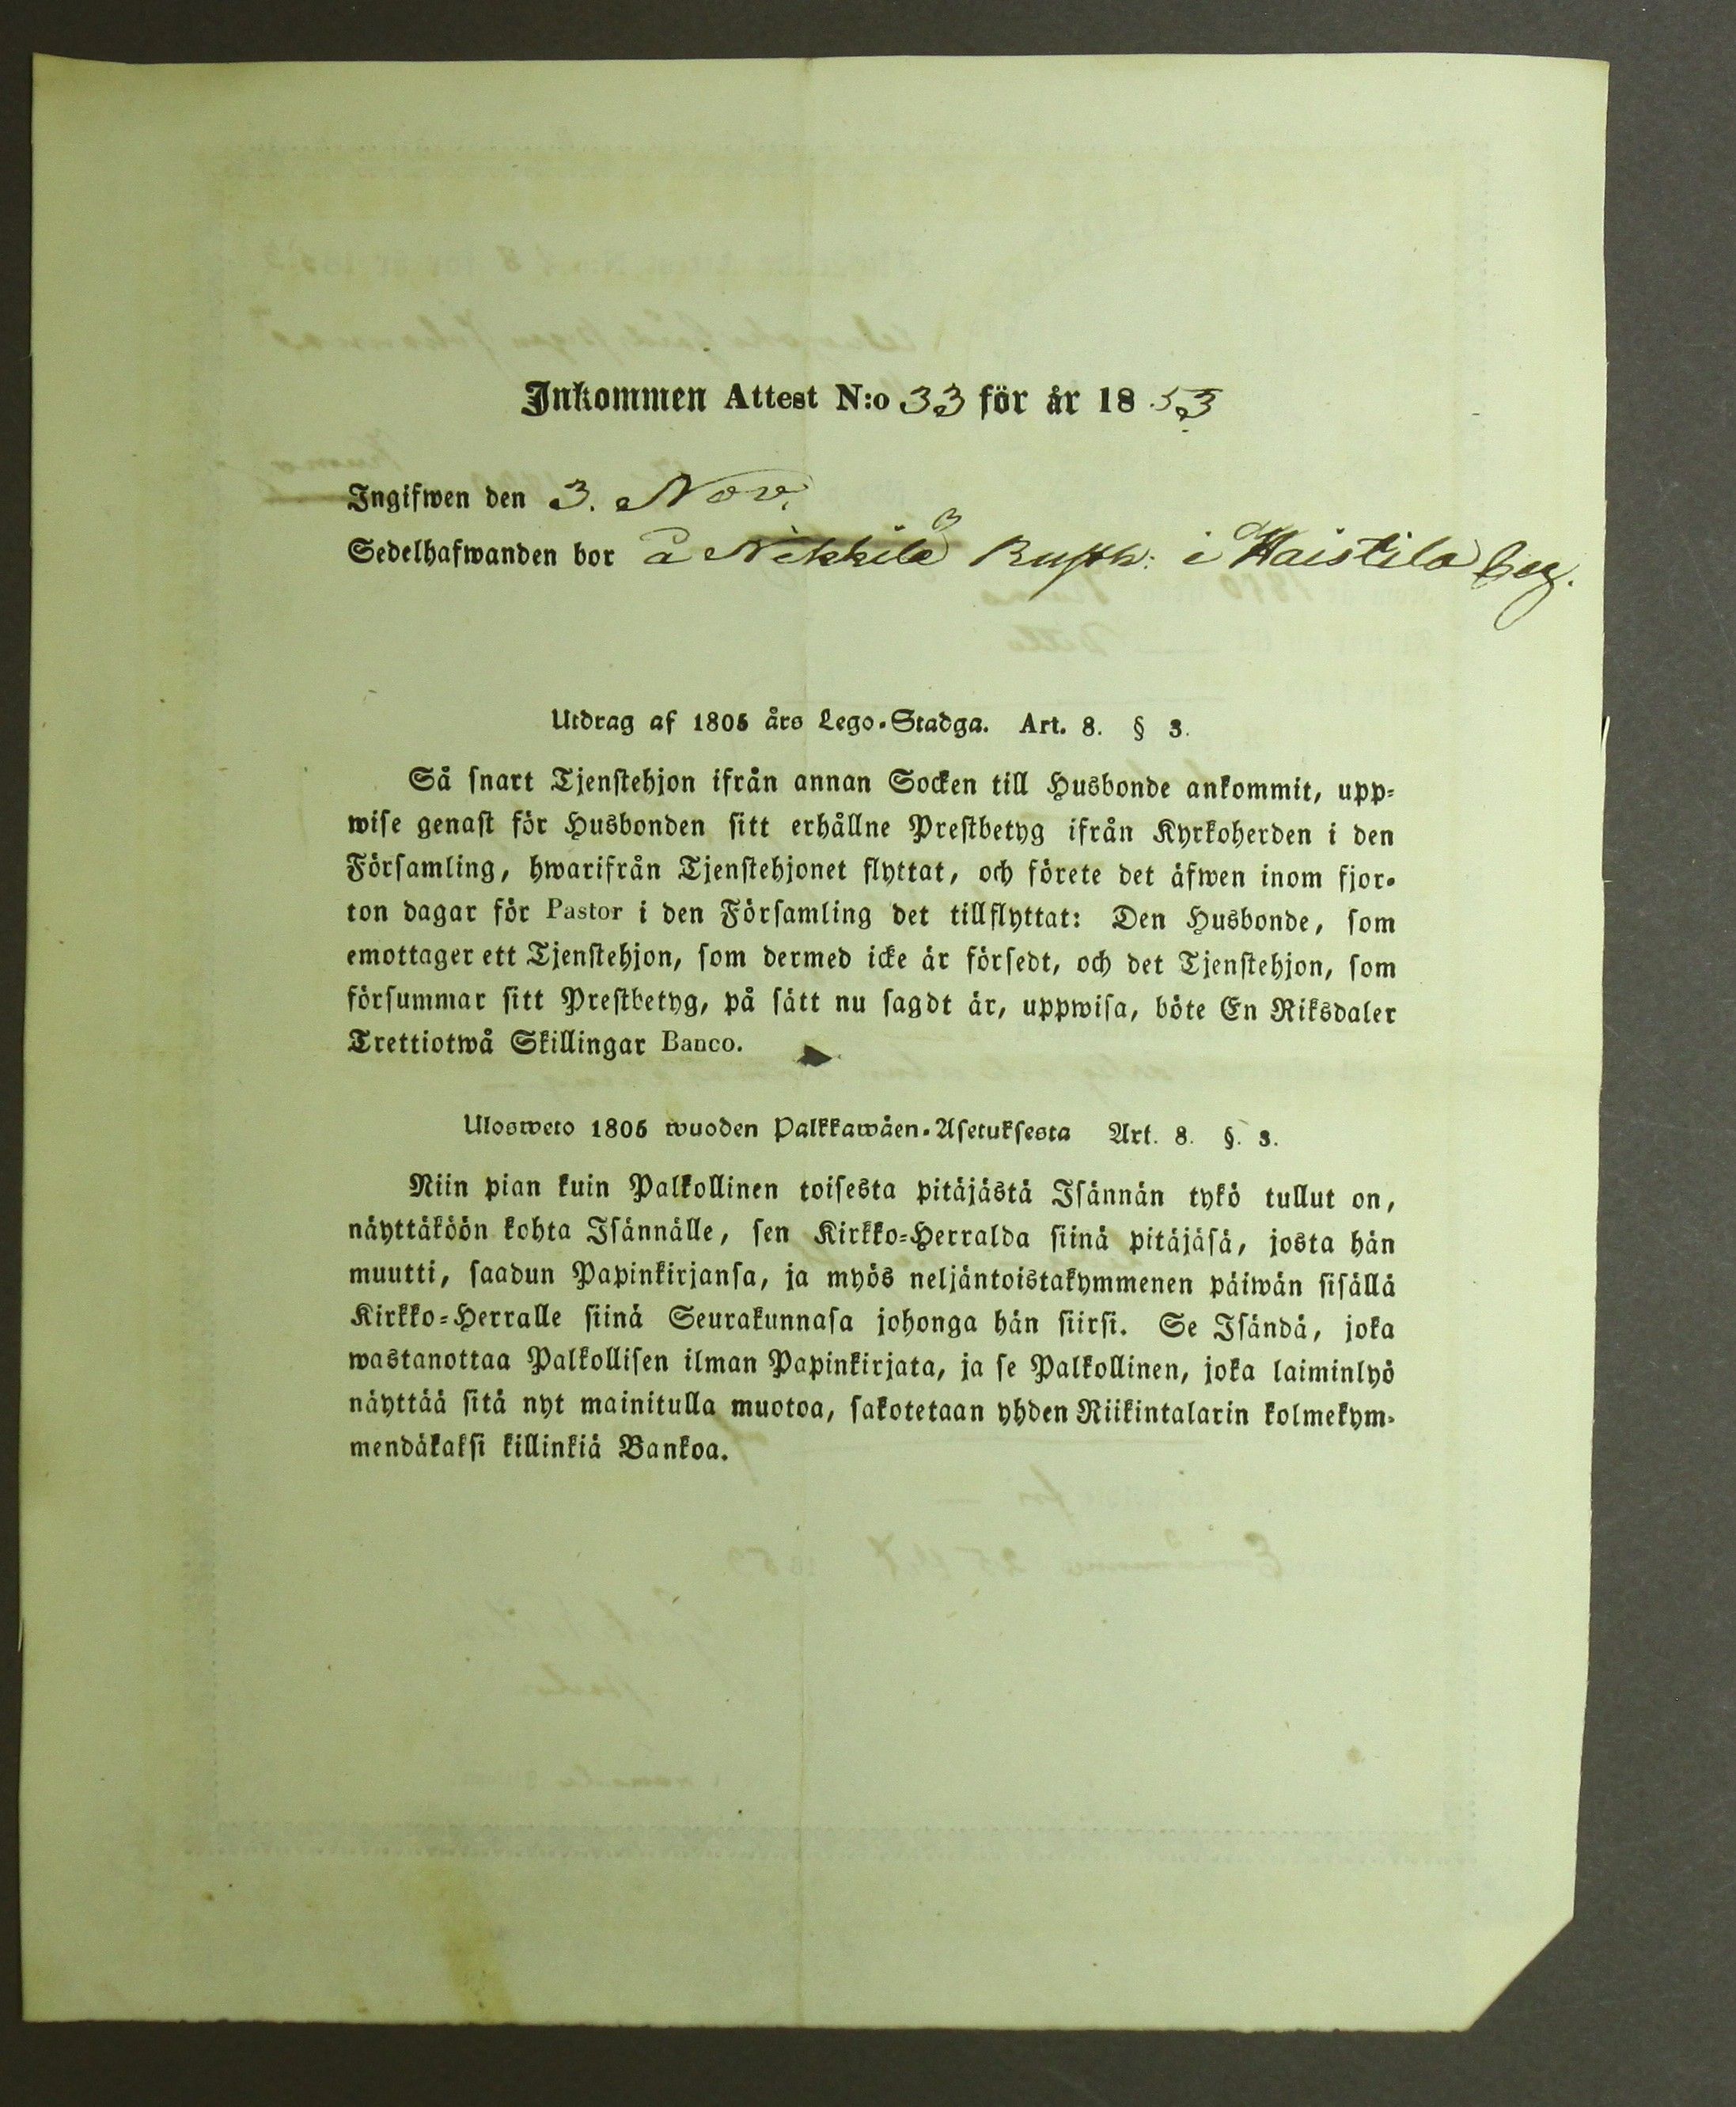 Inkommen Attest N:o 33 för år 1853
Ingifwen den 3. Nov.
Sedelhafwanden bor å Nikkilä Rusth: i Haistila by.
Utdrag af 1805 års Lego-Stadga. Art. 8. § 3.
Så snart Tjenstehjon ifrån annan Socken till Husbonde ankommit, upp-
wise genast för Husbonden sitt erhållne Prestbetyg ifrån Kyrkoherden i den
Församling, hwarifrån Tjenstehjonet flyttat, och förete det äfwen inom fjor-
ton dagar för Pastor i den Församling det tillflyttat: Den Husbonde, som
emottager ett Tjenstehjon, som dermed icke är försedt, och det Tjenstehjon, som
försummar sitt Prestbetyg, på sätt nu sagdt är, uppwisa, böte En Riksdaler
Trettiotwå Skillingar Banco.
Ulosweto 1805 wuoden Palkkawäen-Asetuksesta Art. 8. §. 3.
Niin pian kuin Palkollinen toisesta pitäjästä Isännän tykö tullut on,
näyttäköön kohta Isännälle, sen Kirkko-Herralda siinä pitäjäsä, josta hän
muutti, saadun Papinkirjansa, ja myös neljäntoistakymmenen päiwän sisällä
Kirkko-Herralle siinä Seurakunnasa johonga hän siirsi. Se Isändä, joka
wastanottaa Palkollisen ilman Papinkirjata, ja se Palkollinen, joka laiminlyö
näyttää sitä nyt mainitulla muotoa, sakotetaan yhden Riikintalarin kolmekym-
mendäkaksi killinkiä Bankoa.